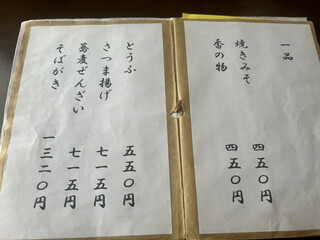 一品
焼きみそ 四五〇円
香の物 四五〇円
とうふ 五五〇円
さつま揚げ 七一五円
蕎麦ぜんざい 七一五円
そばがき 一三二〇円